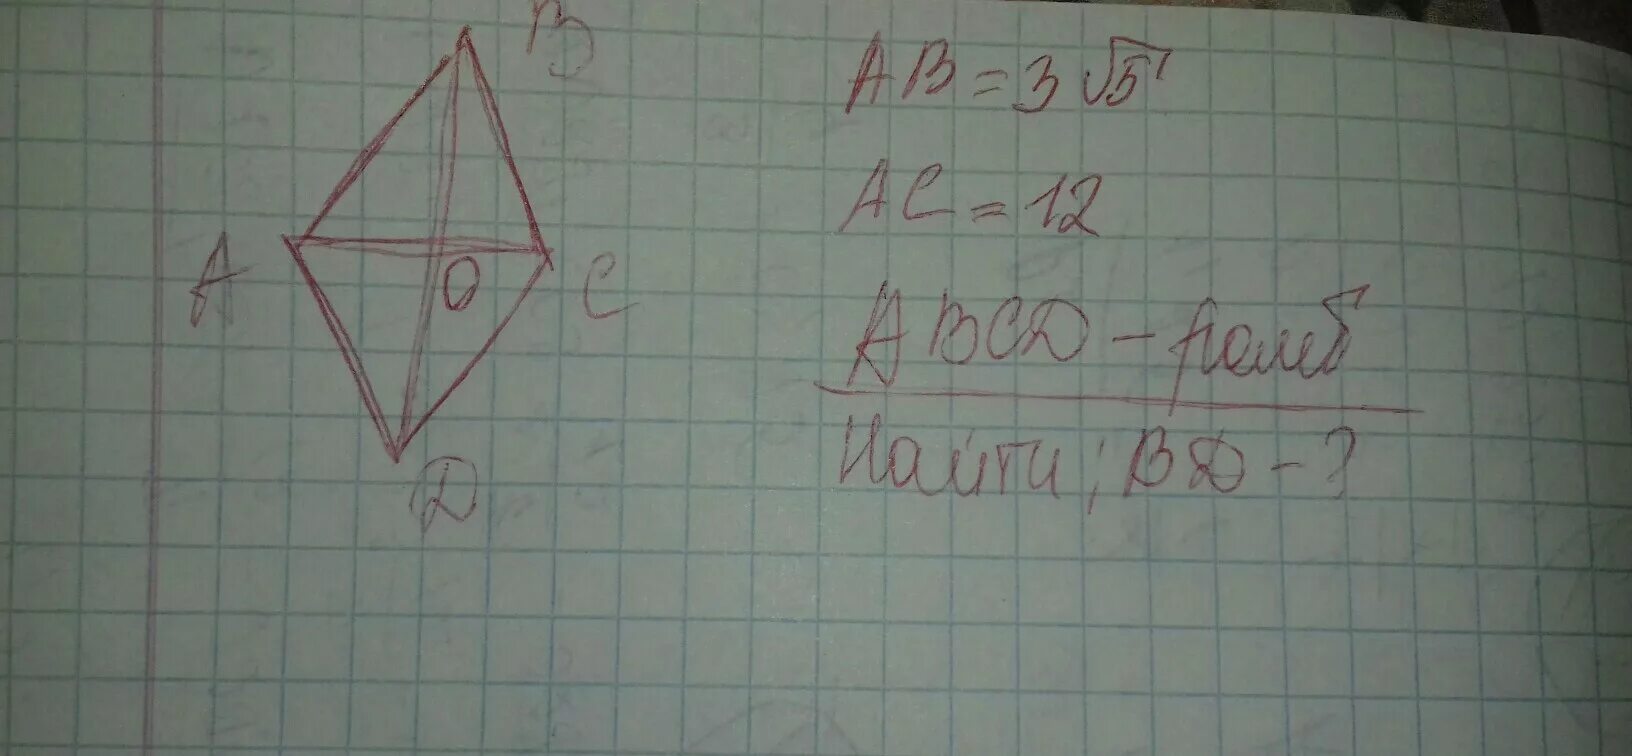 B
A
O
C
D
AB = 3√5
AC = 12
ABCD – ромб
Найти; BD – ?